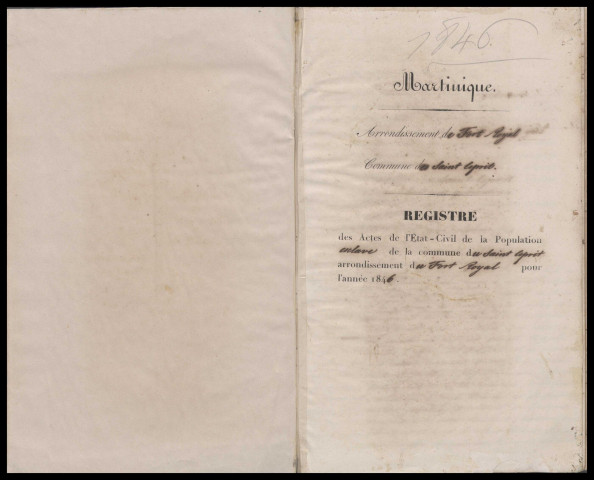 1846.
Martinique.
Arrondissement de Fort Royal
Commune du Saint esprit.
REGISTRE
des Actes de l'État-Civil de la Population
esclave de la commune du Saint esprit
arrondissement du Fort Royal pour
l'année 1846.